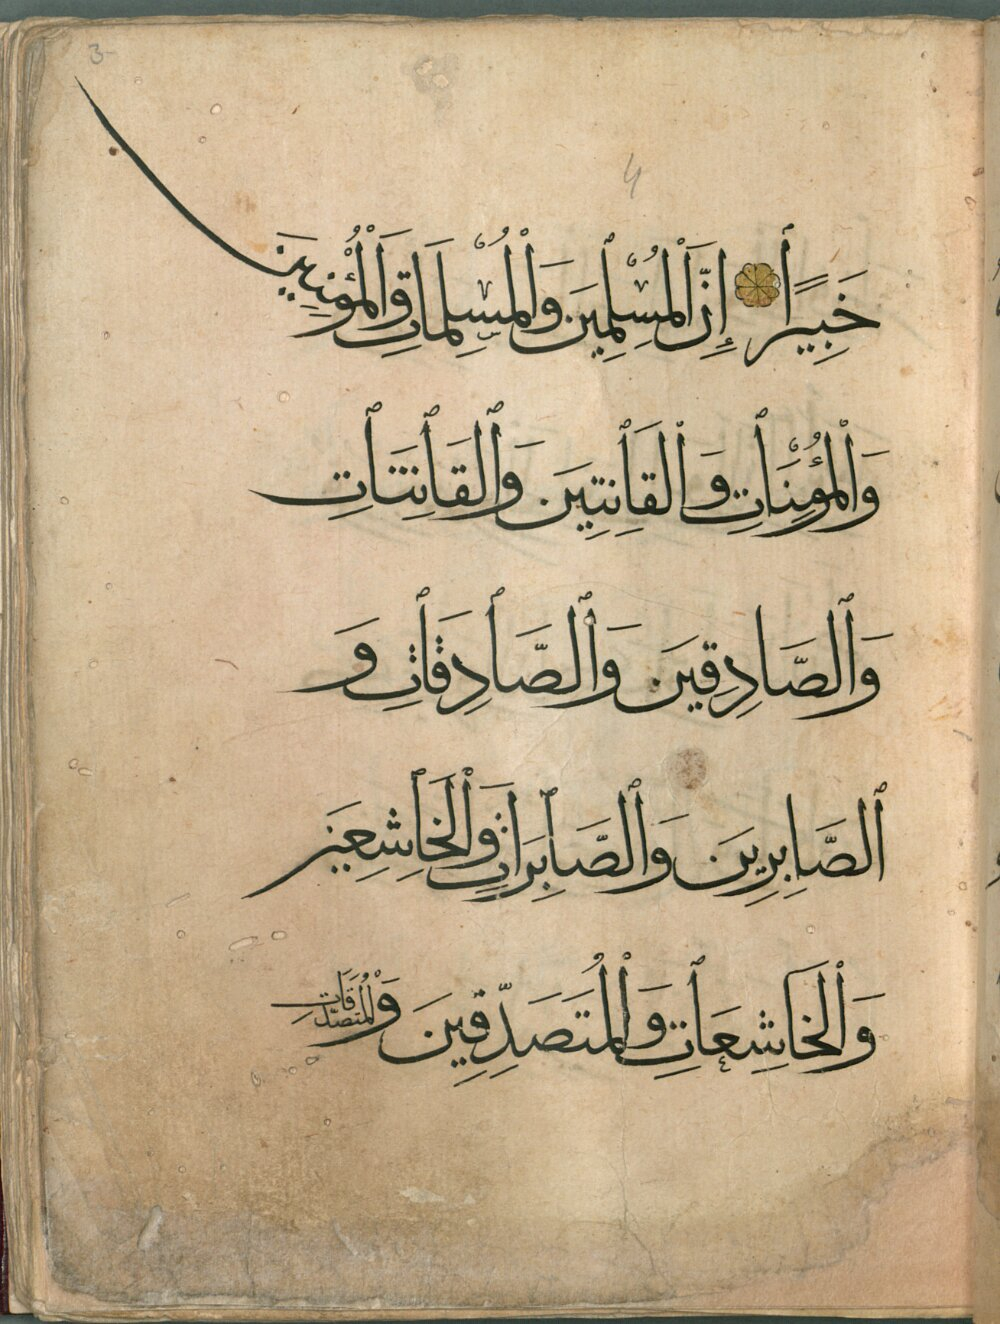 3-
4
خَبِيرًا إِنَّ الْمُسْلِمِينَ وَالْمُسْلِمَاتِ وَالْمُؤْمِنِينَ
وَالْمُؤْمِنَاتِ وَالْقَانِتِينَ وَالْقَانِتَاتِ
وَالصَّادِقِينَ وَالصَّادِقَاتِ وَ
الصَّابِرِينَ وَالصَّابِرَاتِ وَالْخَاشِعِينَ
وَالْخَاشِعَاتِ وَالْمُتَصَدِّقِينَ وَالْمُتَصَدِّقَاتِ